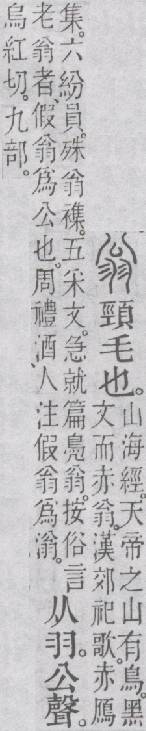 翁
頸毛也。
山海經。天帝之山有鳥。黑
文而赤翁。漢郊祀歌。赤鴈
集。六紛員。殊翁襍。五采文。急就篇鳧翁。按俗言
老翁者、假翁爲公也。周禮酒、人注假翁爲滃。
从羽。公聲。
烏紅切。九部。